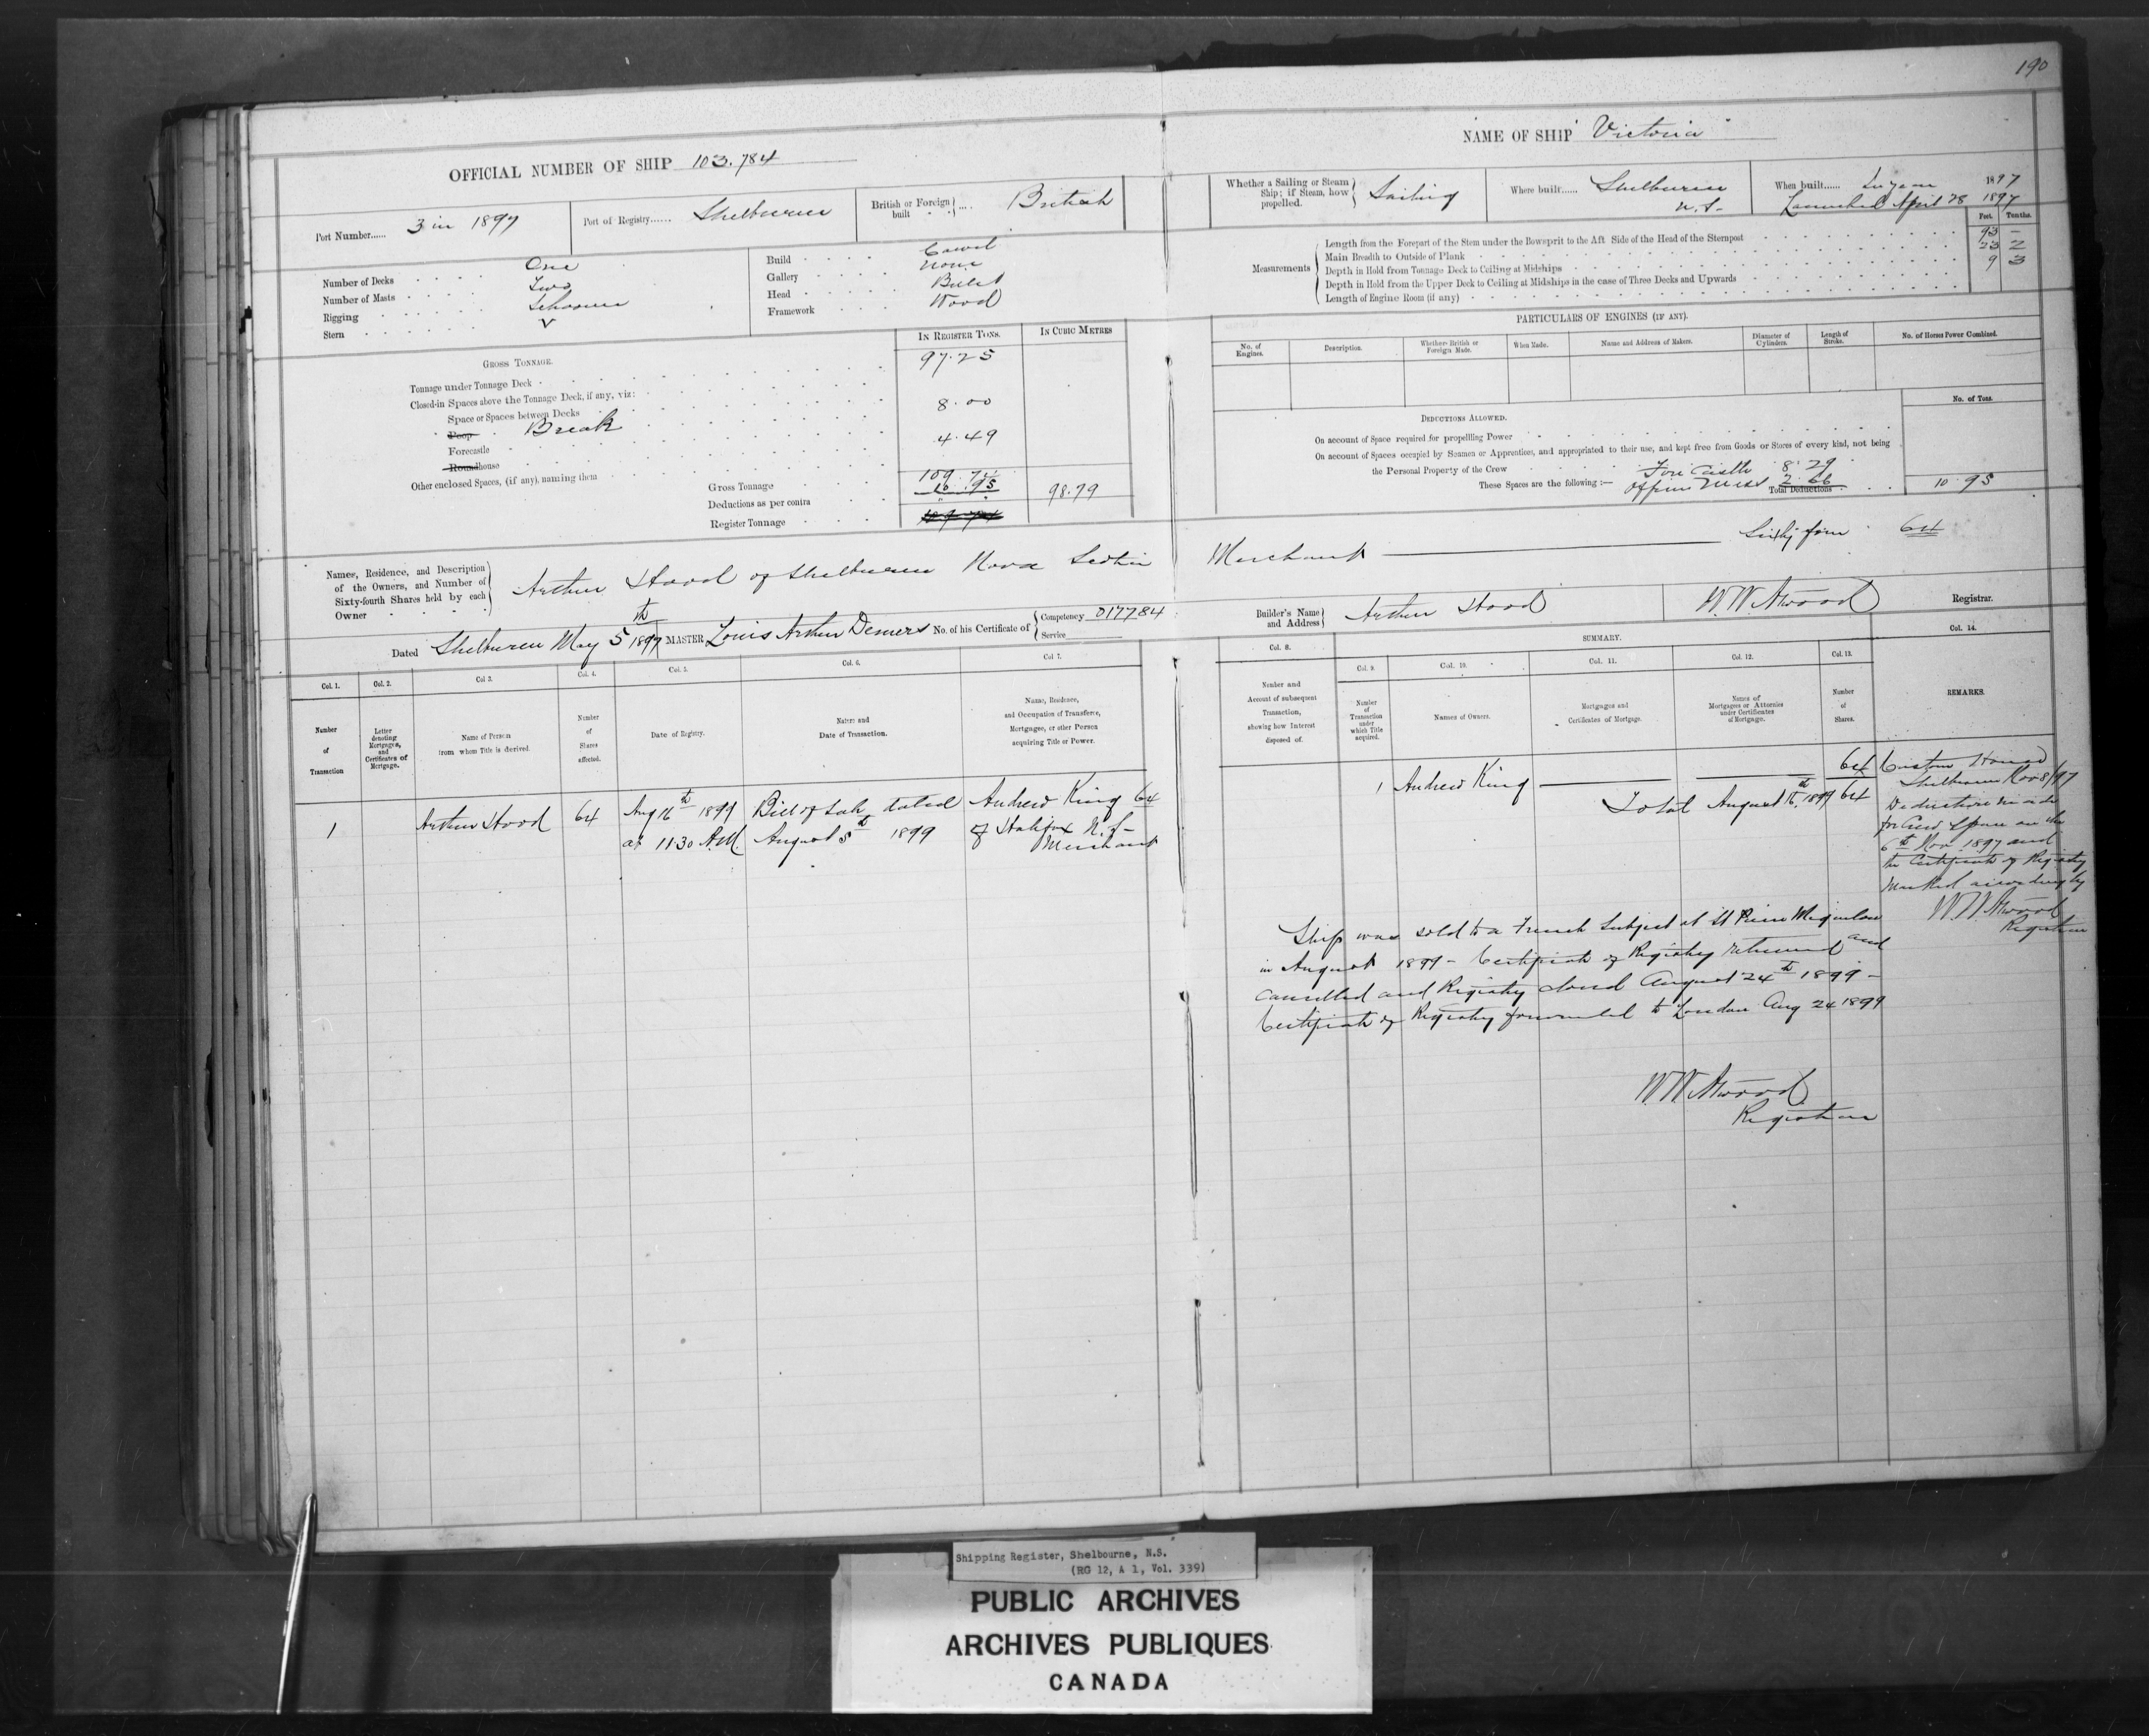 190
OFFICIAL NUMBER OF SHIP 103.784
NAME OF SHIP "Victoria"
Port Number...... 3 in 1897
Port of Registry...... Shelburne
British or Foreign built .... British
Whether a Sailing or Steam Ship; if Steam, how propelled. Sailing
Where built...... Shelburne N.S.
When built...... In year 1897
Launched April 28 1897
Number of Decks One
Number of Masts Two
Rigging Schooner
Stern V
Build Carvel
Gallery None
Head Billet
Framework Wood
Measurements
Feet. Tenths.
Length from the Forepart of the Stem under the Bowsprit to the Aft Side of the Head of the Sternpost 93 –
Main Breadth to Outside of Plank 23 2
Depth in Hold from Tonnage Deck to Ceiling at Midships 9 3
Depth in Hold from the Upper Deck to Ceiling at Midships in the case of Three Decks and Upwards
Length of Engine Room (if any)
GROSS TONNAGE.
IN REGISTER TONS.
IN CUBIC METRES
Tonnage under Tonnage Deck 97.25
Closed-in Spaces above the Tonnage Deck, if any, viz:
Space or Spaces between Decks
Poop Break 8.00
Forecastle 4.49
Roundhouse
Other enclosed Spaces, (if any), naming them
Gross Tonnage 109.74
Deductions as per contra 10.95 98.79
Register Tonnage
PARTICULARS OF ENGINES (IF ANY).
No. of Engines.
Description.
Whether British or Foreign Made.
When Made.
Name and Address of Makers.
Diameter of Cylinders.
Length of Stroke.
No. of Horses Power Combined.
DEDUCTIONS ALLOWED.
No. of Tons.
On account of Space required for propelling Power
On account of Spaces occupied by Seamen or Apprentices, and appropriated to their use, and kept free from Goods or Stores of every kind, not being
the Personal Property of the Crew
These Spaces are the following:— Fore Castle 8.29
Officers Mess 2.66
Total Deductions 10.95
Names, Residence, and Description of the Owners, and Number of Sixty-fourth Shares held by each Owner
Arthur Hood of Shelburne Nova Scotia Merchant — Sixty four 64
Dated Shelburne May 5th 1897 MASTER Louis Arthur Demers No. of his Certificate of Competency 017784
Service
Builder's Name and Address Arthur Hood
W. W. Atwood Registrar.
Col. 1.
Number of Transaction
Col. 2.
Letter denoting Mortgages, and Certificates of Mortgage.
Col 3.
Name of Person from whom Title is derived.
Col. 4.
Number of Shares affected.
Col. 5.
Date of Registry.
Col. 6.
Nature and Date of Transaction.
Col 7.
Name, Residence, and Occupation of Transferee, Mortgagee, or other Person acquiring Title or Power.
Col. 8.
Number and Account of subsequent Transaction, showing how Interest disposed of.
SUMMARY.
Col. 9.
Number of Transaction under which Title acquired.
Col. 10.
Names of Owners.
Col. 11.
Mortgages and Certificates of Mortgage.
Col. 12.
Names of Mortgagees or Attornies under Certificates of Mortgage.
Col. 13.
Number of Shares.
Col. 14.
REMARKS.
1 Arthur Hood 64 Aug 16th 1899 Bill of Sale dated Andrew King 64
at 11.30 A.M. August 5th 1899 of Halifax N.S.
Merchant
1 Andrew King 64
Total August 16th 1899 64
Custom House
Shelburne Nov 8/97
Deduction made
for Crew Space on the
6th Nov 1897 and
the Certificate of Registry
marked accordingly
W. W. Atwood
Registrar
Ship was sold to a French Subject at St Pierre Miquelon
in August 1899 – Certificate of Registry returned and
cancelled and Registry closed August 24th 1899 –
Certificate of Registry forwarded to London Aug 24 1899
W. W. Atwood
Registrar
Shipping Register, Shelbourne, N.S.
(RG 12, A 1, Vol. 339)
PUBLIC ARCHIVES
ARCHIVES PUBLIQUES
CANADA